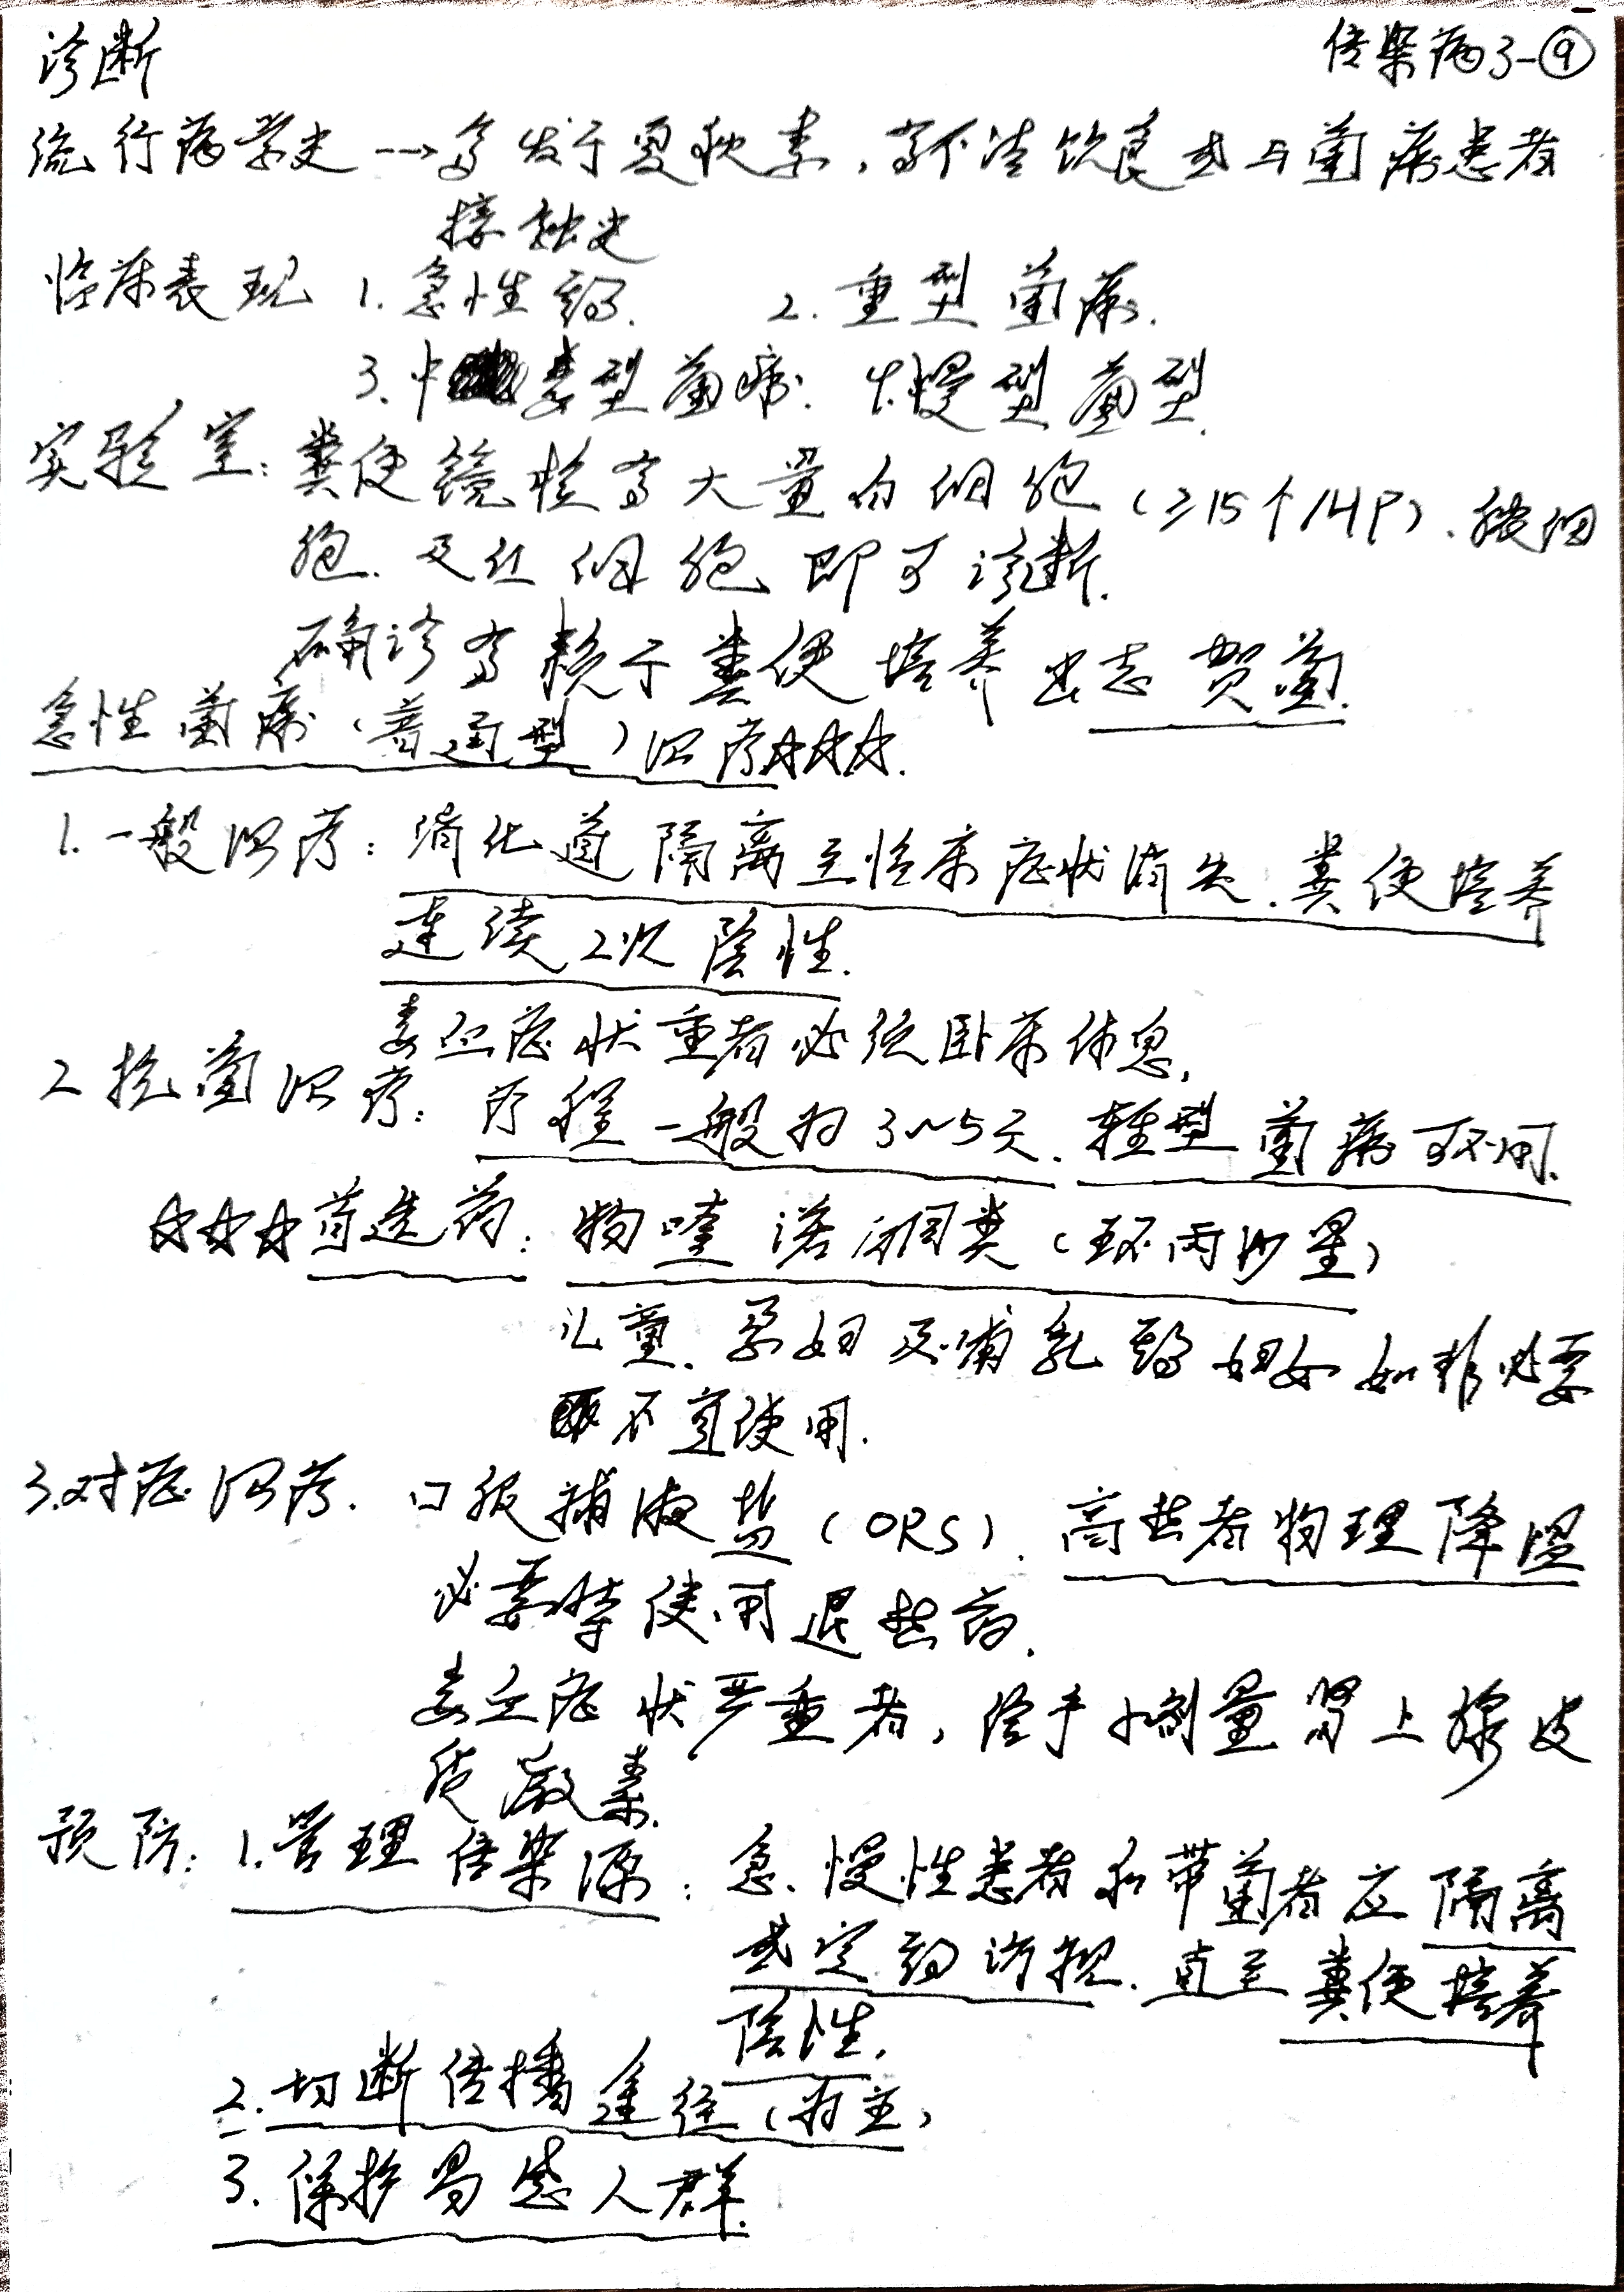 诊断
传染病3-⑨
流行病学史→多发于夏秋季,有不洁饮食或与菌痢患者
接触史
临床表现 1.急性期. 2.重型菌痢.
3.中毒型菌痢. 4.慢型菌型.
实验室:粪便镜检有大量白细胞(≥15个/HP).脓细
胞.及红细胞即可诊断.
确诊有赖于粪便培养出志贺菌.
急性菌痢(普通型)治疗☆☆☆.
1.一般治疗:消化道隔离至临床症状消失.粪便培养
连续2次阴性.
毒血症状重者必须卧床休息.
2抗菌治疗:疗程一般为3~5天.轻型菌痢可不用.
☆☆☆首选药:物喹诺酮类(环丙沙星)
儿童.孕妇及哺乳期妇女如非必要
不宜使用.
3.对症治疗.口服补液盐(ORS).高热者物理降温
必要时使用退热药.
毒血症状严重者,给予小剂量肾上腺皮
质激素.
预防:1.管理传染源:急.慢性患者和带菌者应隔离
或定期访视.直至粪便培养
阴性.
2.切断传播途径(为主)
3.保护易感人群.